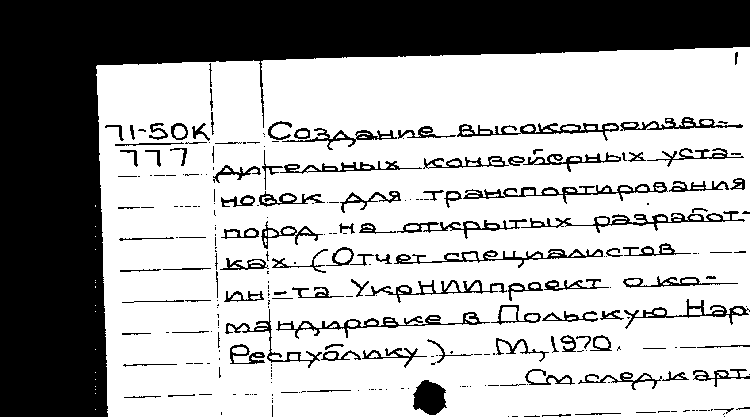 71-50К Создание высокопроизво-
777 дительных конвейерных уста-
новок для транспортирования
пород на открытых разработ-
ках. (Отчет специалистов
ин-та УкрНИИпроект о ко-
мандировке в Польскую Нар
Республику). М., 1970.
См.след.карт.